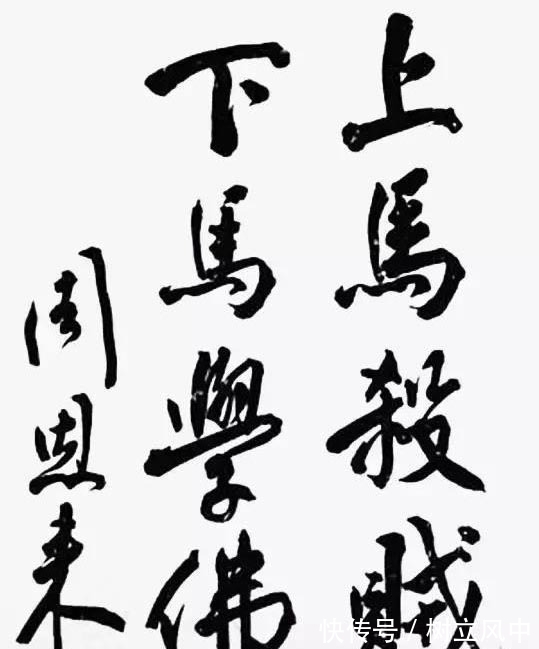 上馬殺賊
下馬學佛
周恩来
快传号/树立风中